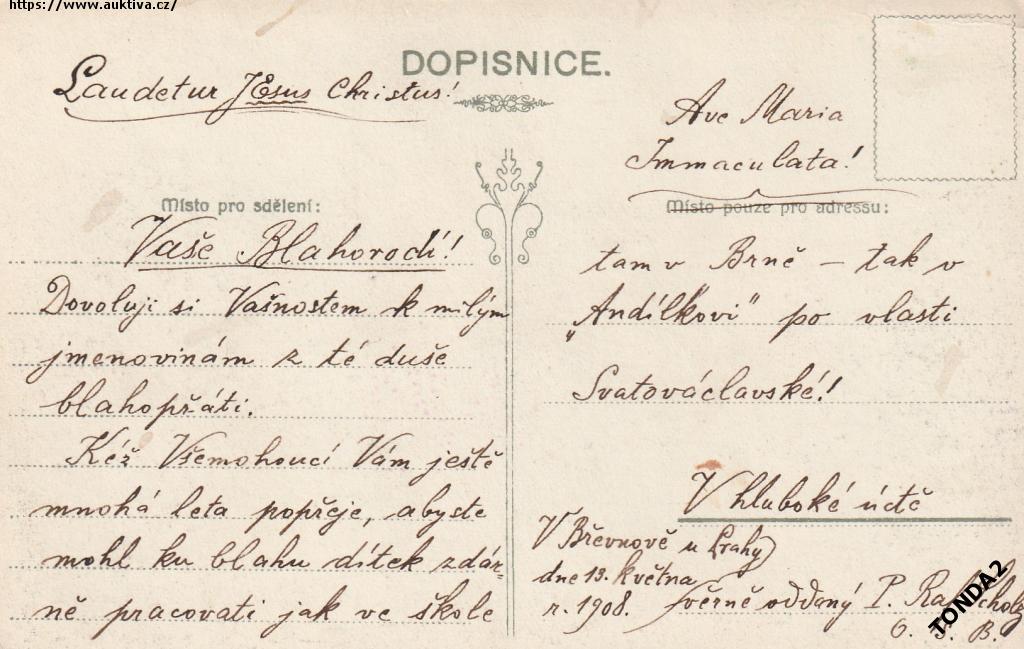 https://www.auktiva.cz/
DOPISNICE.
Laudetur JEsus Christus!
Ave Maria
Immaculata!
Místo pro sdělení:
Vaše Blahorodí!
Dovoluji si Vašnostem k milým
jmenovinám z té duše
blahopřáti.
Kéž Všemohoucí Vám ještě
mnohá leta popřeje, abyste
mohl ku blahu dítek zdár-
ně pracovati jak ve škole
Místo pouze pro adressu:
tam v Brně – tak v
„Andílkovi" po vlasti
Svatováclavské!
V hluboké úctě
V Břevnově u Prahy
dne 13. května
r. 1908.
věrně oddaný P.
O. S. B.
TONDA2